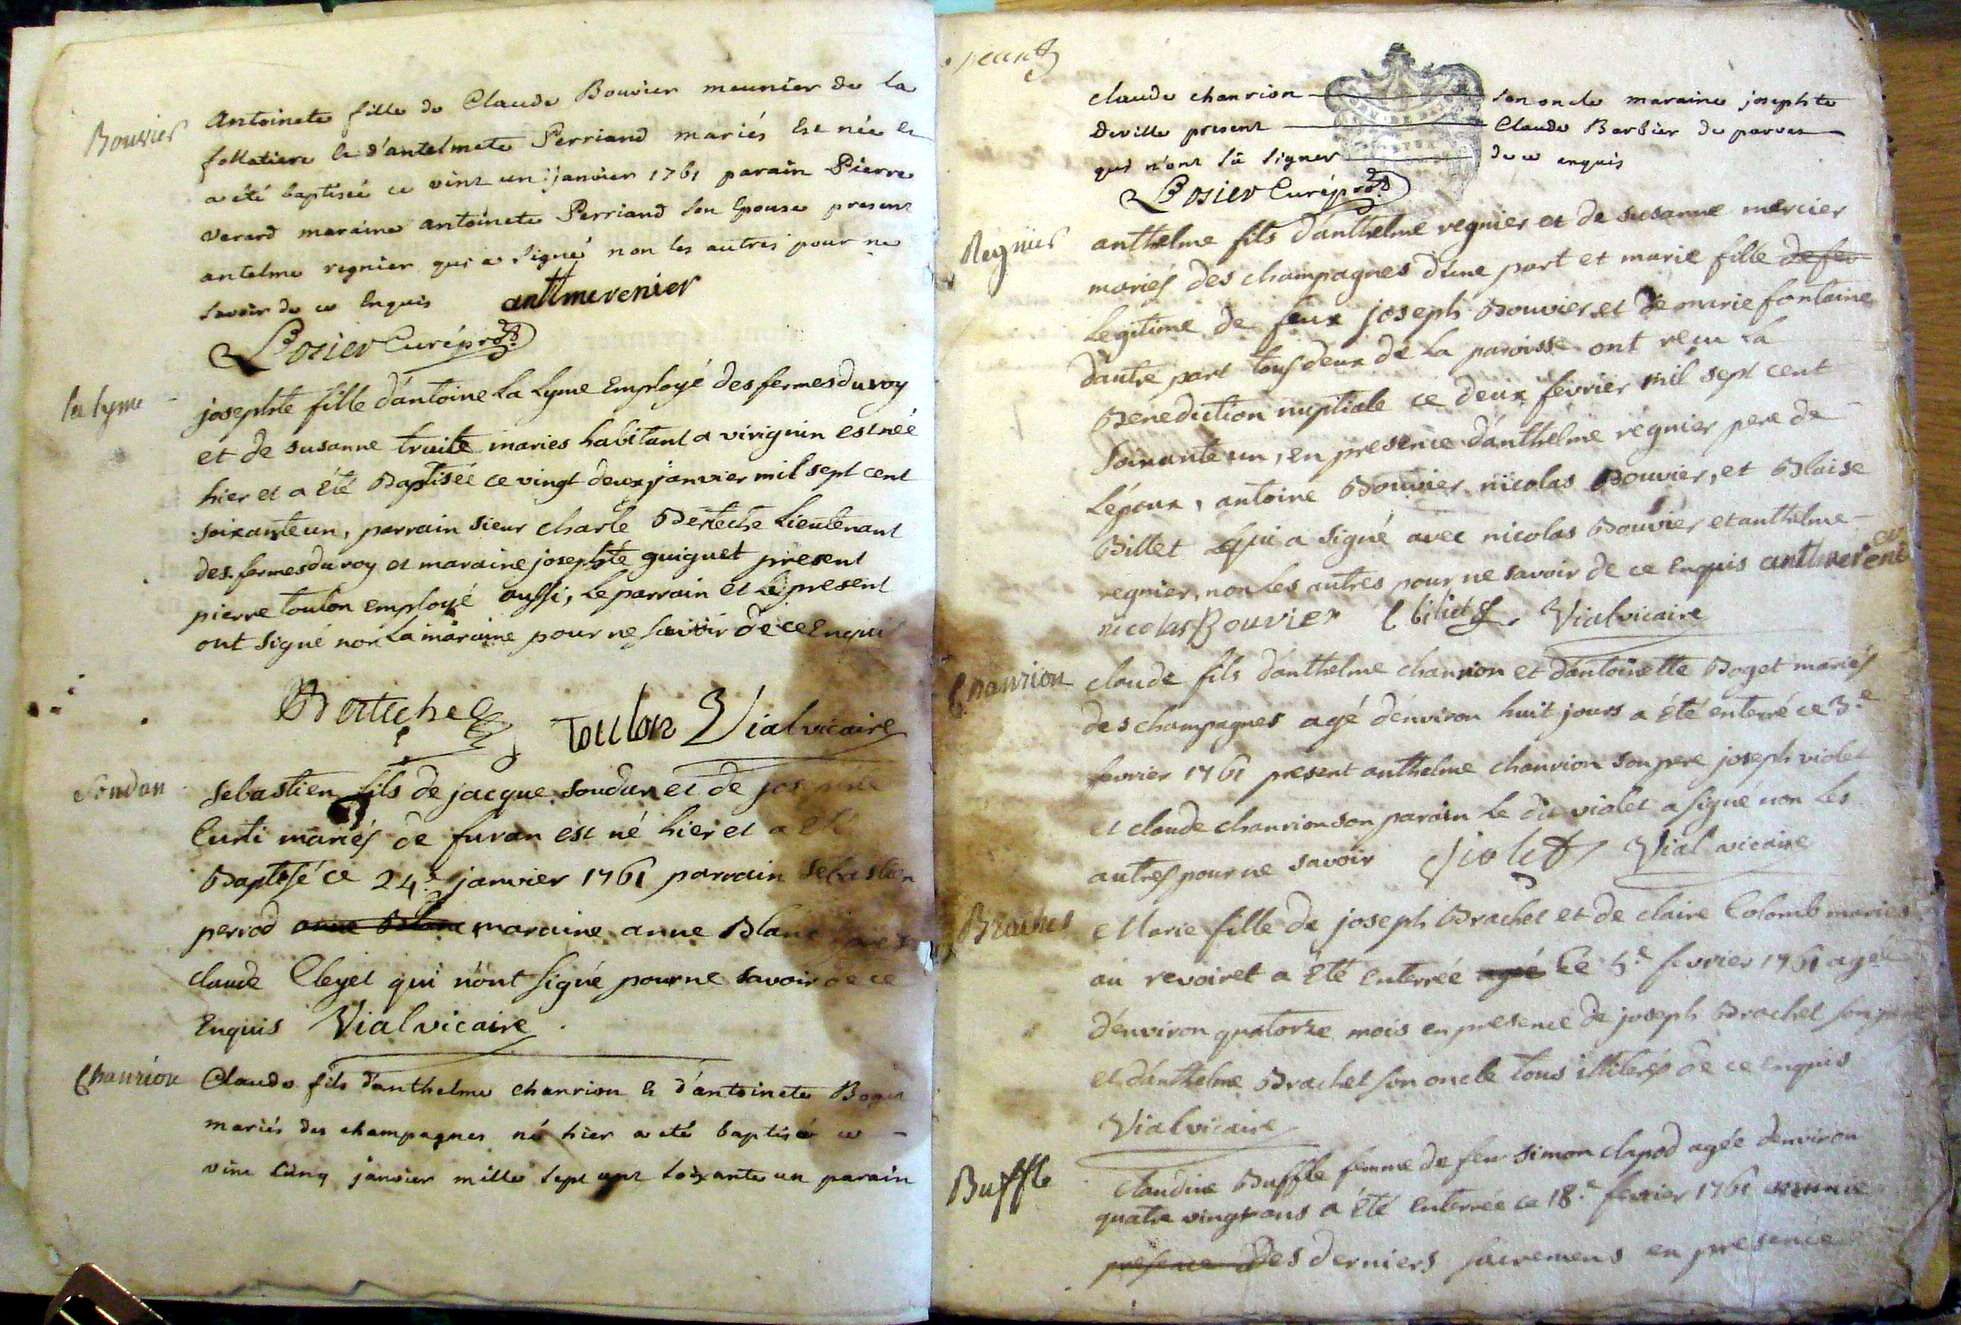 Bouvier
Antoinete fille de Claude Bouvier meunier de la
follatiere & d'antelmete Perriand mariés Est née &
a été baptisée ce vint un janvier 1761 parain Pierre
verard maraine antoinete Perriand son Epouse present
antelme regnier qui a signé non les autres pour ne
savoir de ce Enquis antlmerenier
Losier Curé
la lyme
josephte fille d'antoine La Lyme Employé des fermes du roy
et de susanne truite maries habitant a virignin est née
hier et a été Baptisée ce vingt deux janvier mil sept cent
soixante un, parrain sieur charle Berteche Lieutenant
des fermes du roy et maraine josephte guiguet present
pierre toulon employé aussi, Le parrain et Le present
ont signé non La maraine pour ne savoir de ce Enquis
Berteche Toulon Vial vicaire
Soudan
Sebastien fils de jacque soudan et de
Curti mariés de furan est né hier et a été
Baptisé ce 24e janvier 1761 parrain sebastien
perrod anne Blanc maraine anne Blanc
claude Cleyet qui n'ont signé pour ne savoir de ce
Enquis Vial vicaire
Chanrion
Claude fils d'anthelme chanrion & d'antoinete Boget
mariés des champagnes né hier a eté baptisé ce
vint cinq janvier mille sept cent soixante un parain
claude chanrion son oncle maraine josephte
Deville present Claude Barbier de parves
qui n'ont sû signer de ce enquis
Losier Curé
Regnier
anthelme fils d'anthelme regnier et de susanne mercier
mariés des champagnes d'une part et marie fille de feu
Legitime de feux joseph Bouvier et de marie fontaine
d'autre part tous deux de La paroisse ont reçu La
Benediction nuptiale ce deux fevrier mil sept cent
Soixante un, en presence d'anthelme regnier pere de
L'époux, antoine Bouvier nicolas Bouvier, et Blaise
Billet qui a signé avec nicolas Bouvier et anthelme
regnier, non Les autres pour ne savoir de ce Enquis
nicolas Bouvier Vial vicaire
Chanrion
claude fils d'anthelme chanrion et d'antoinette Boget mariés
des champagnes agé d'environ huit jours a été enterré ce 3e
fevrier 1761 present anthelme chanrion son pere joseph violet
et claude chanrion son parain Le dit violet a signé non Les
autres pour ne savoir Violet Vial vicaire
Brachet
Marie fille de joseph Brachet et de claire Colomb mariés
au revoiret a été enterrée agée Le 5e fevrier 1761 agée
d'environ quatorze mois en presence de joseph Brachet son pere
et d'anthelme Brachet son oncle tous illiterés de ce enquis
Vial vicaire
Buffle
Claudine Buffle femme de feu simon clapod agée d'environ
quatre vingt ans a été enterrée ce 18e fevrier 1761
presence Des derniers sacremens en presence